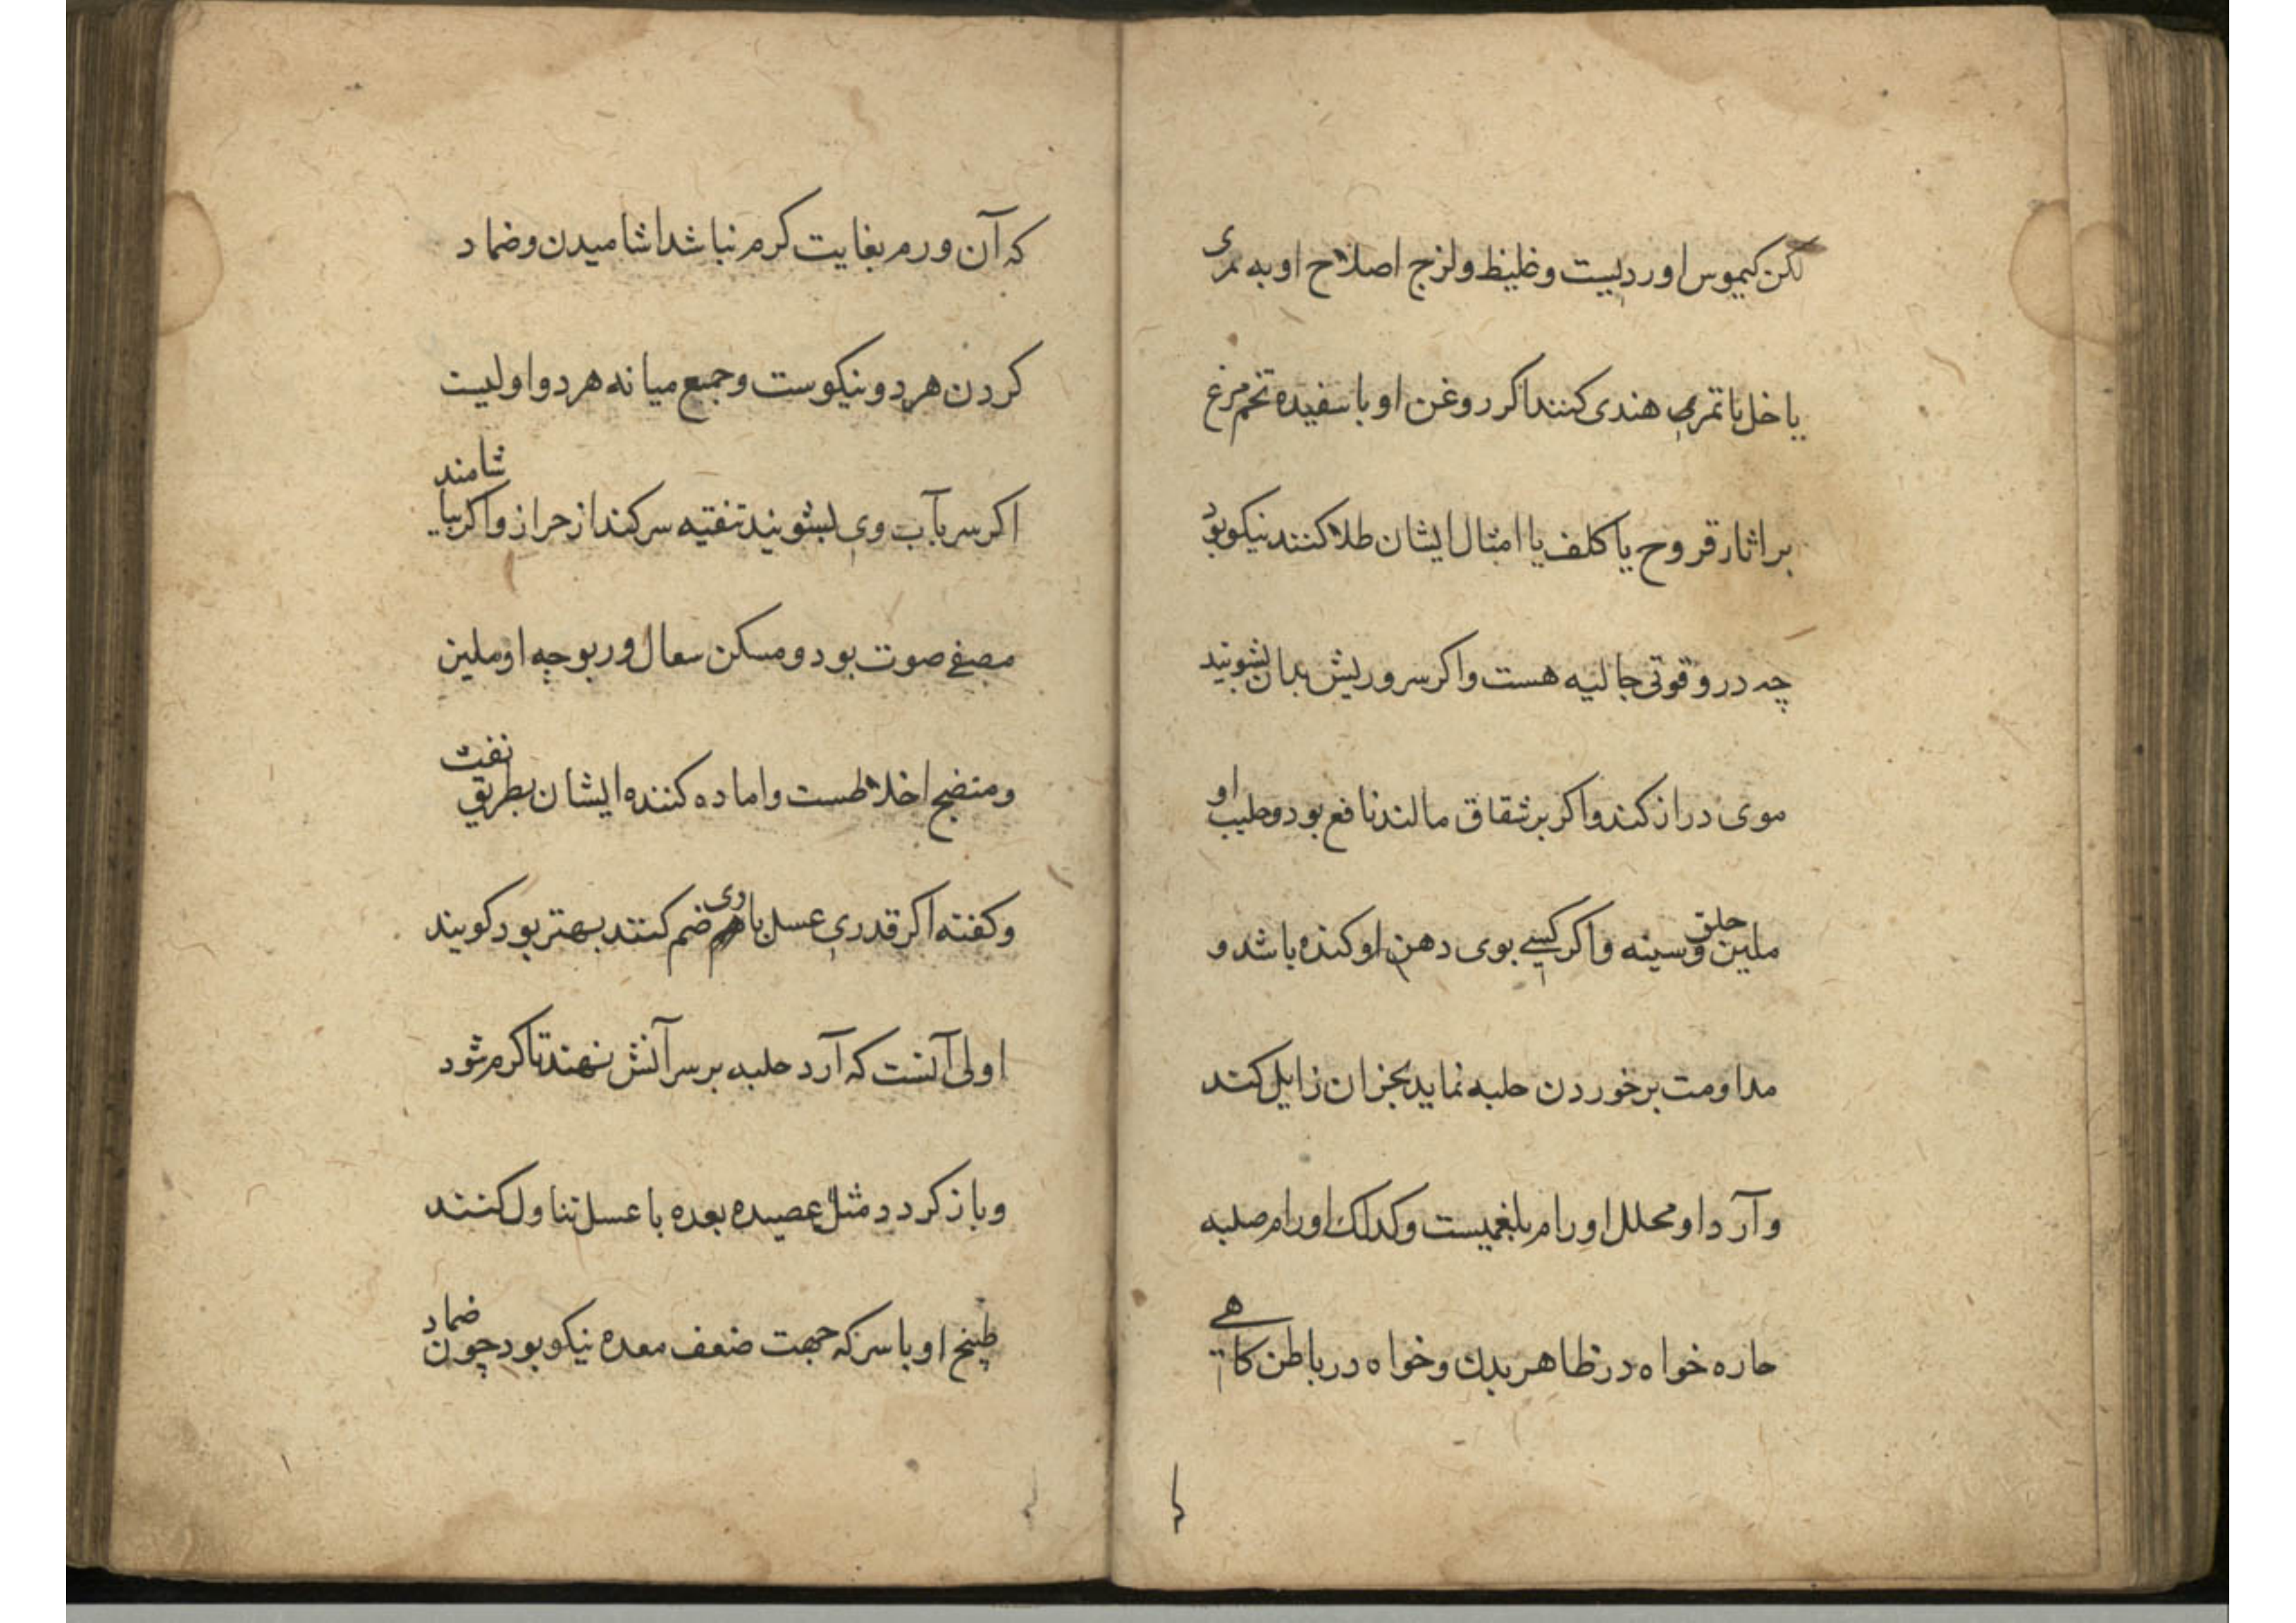 لکن کیموس او ردیست و غلیظ و لزج اصلاح او به مری
یا خل یا تمر هندی کنند اکر روغن او با سفیده تخم مرغ
بر اثار قروح یا کلف یا امثال ایشان طلا کنند نیکو بود
چه درو قوتی جالیه هست و اکر سر و ریش بدان بشویند
موی دراز کند و اکر بر شقاق مالند نافع بود و طبیب او
ملین حلق و سینه و اکر کسی بوی دهن او کنده باشد و
مداومت بر خوردن حلبه نماید بخر ان زایل کند
و آرد او محلل اورام بلغمیست و کدلک اورام صلبه
حاره خواه در ظاهر بدن و خواه در باطن کاهی
که آن ورم بغایت کرم نباشد اشامیدن و ضماد
کردن هر دو نیکوست و جمیع میانه هر دو اولیست
اکر سر بآب وی بشویند تنقیه سر کند از حراز و اکر بیاشامند
مصفی صوت بود و مسکن سعال و ربو چه او ملین
و منضج اخلاطست و اماده کننده ایشان بطریق نفث
و کفته اکر قدری عسل با وی ضم کنند بهتر بود کویند
اولی آنست که آرد حلبه بر سر آتش نهند تا کرم شود
و باز کردد مثل عصیده بعده با عسل تناول کنند
طبخ او با سرکه جهت ضعف معده نیکو بود چون ضماد